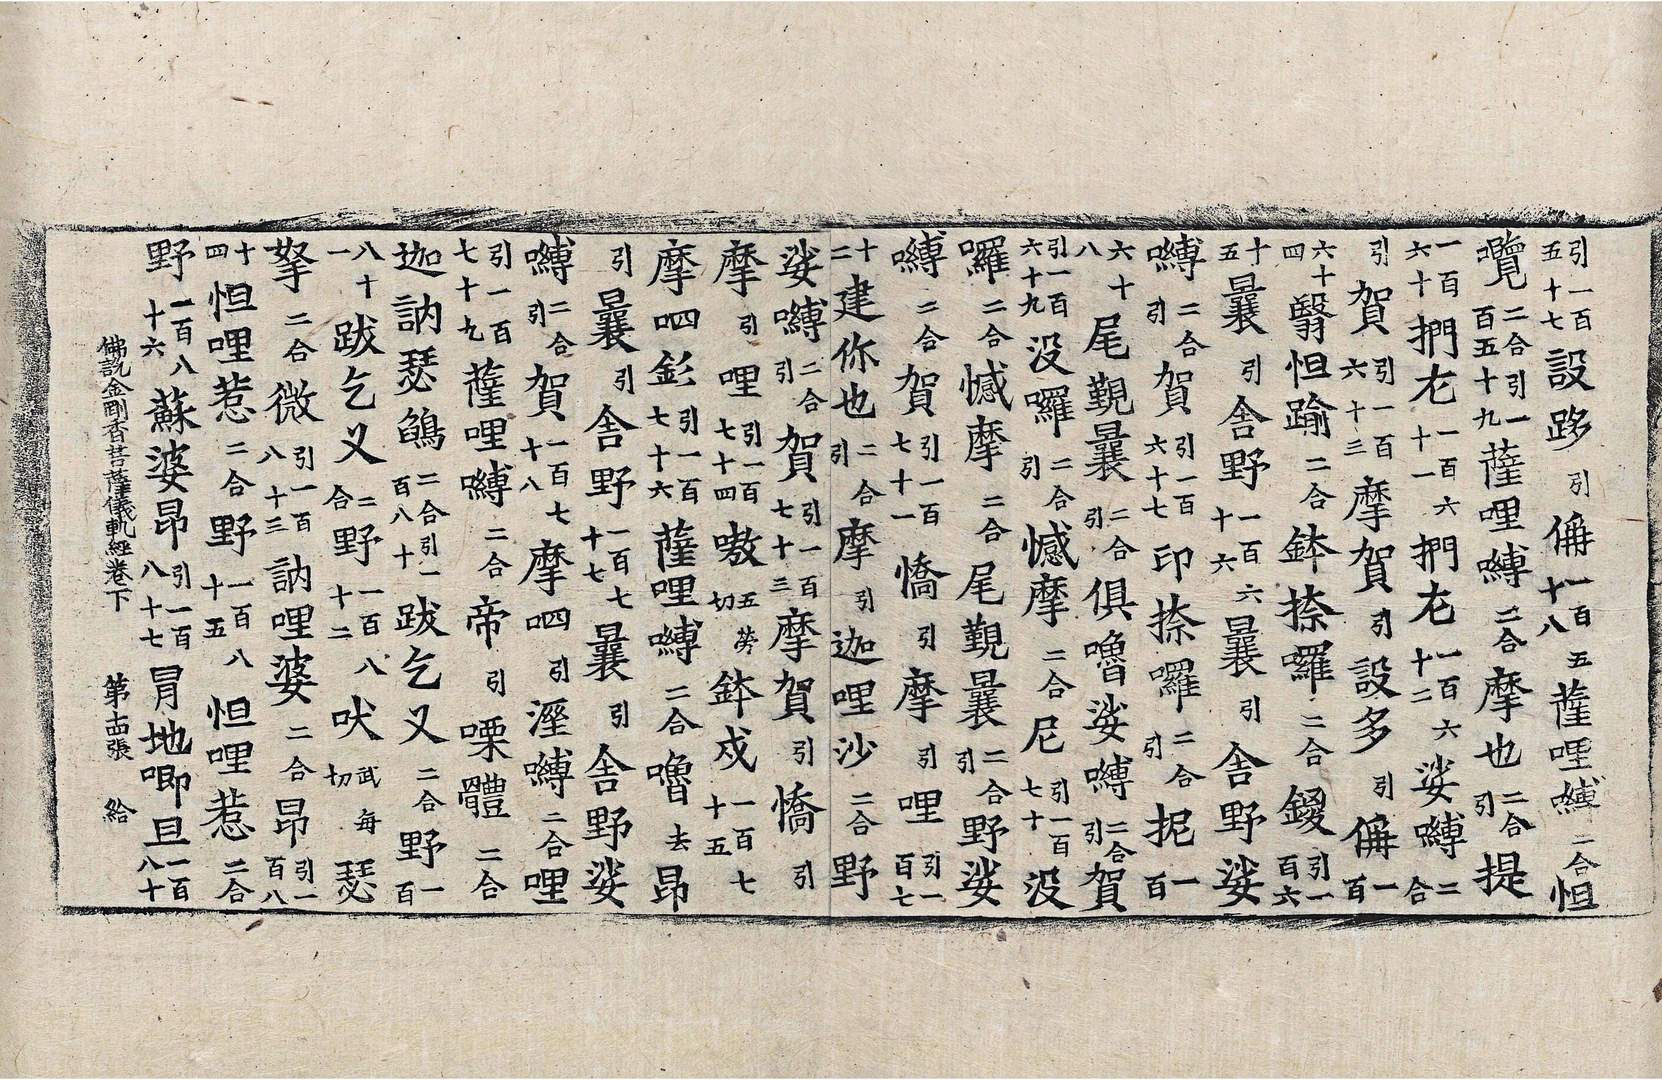 引一百五十七設哆引㒇一百五十八薩哩嚩二合怛
囕二合引一百五十九薩哩嚩二合摩也二合引提
一百六十捫尤一百六十一捫尤一百六十二娑嚩二合
引賀引一百六十三摩賀引設多引㒇一百
六十四翳怛踰二合鉢捺囉二合錣引一百六
十五曩引舍野一百六十六曩引舍野娑
嚩二合引賀引一百六十七印捺囉二合引抳一百
六十八尾覲曩二合引俱嚕娑嚩二合引賀
引一百六十九沒囉二合引憾摩二合尼引一百七十沒
囉二合憾摩二合尾覲曩二合引野娑
嚩二合賀引一百七十一憍引摩引哩引一百七
十二建你也二合引摩引迦哩沙二合野
娑嚩二合引賀引一百七十三摩賀引憍引
摩引哩引一百七十四嗷五勞切鉢戍一百七十五
摩呬彭引一百七十六薩哩嚩二合嚕去昂
引曩引舍野一百七十七曩引舍野娑
嚩二合引賀一百七十八摩呬引溼嚩二合哩
引一百七十九薩哩嚩二合帝引㗚體二合
迦訥瑟鴿二合引一百八十跋乞叉二合野一百
八十一跋乞叉二合野一百八十二吠武每切瑟
拏二合微引一百八十三訥哩婆二合昂引一百八
十四怛哩惹二合野一百八十五怛哩惹二合
野一百八十六蘇婆昂引一百八十七冐地唧旦一百八十
佛說金剛香菩薩儀軌經卷下 第十四張 給